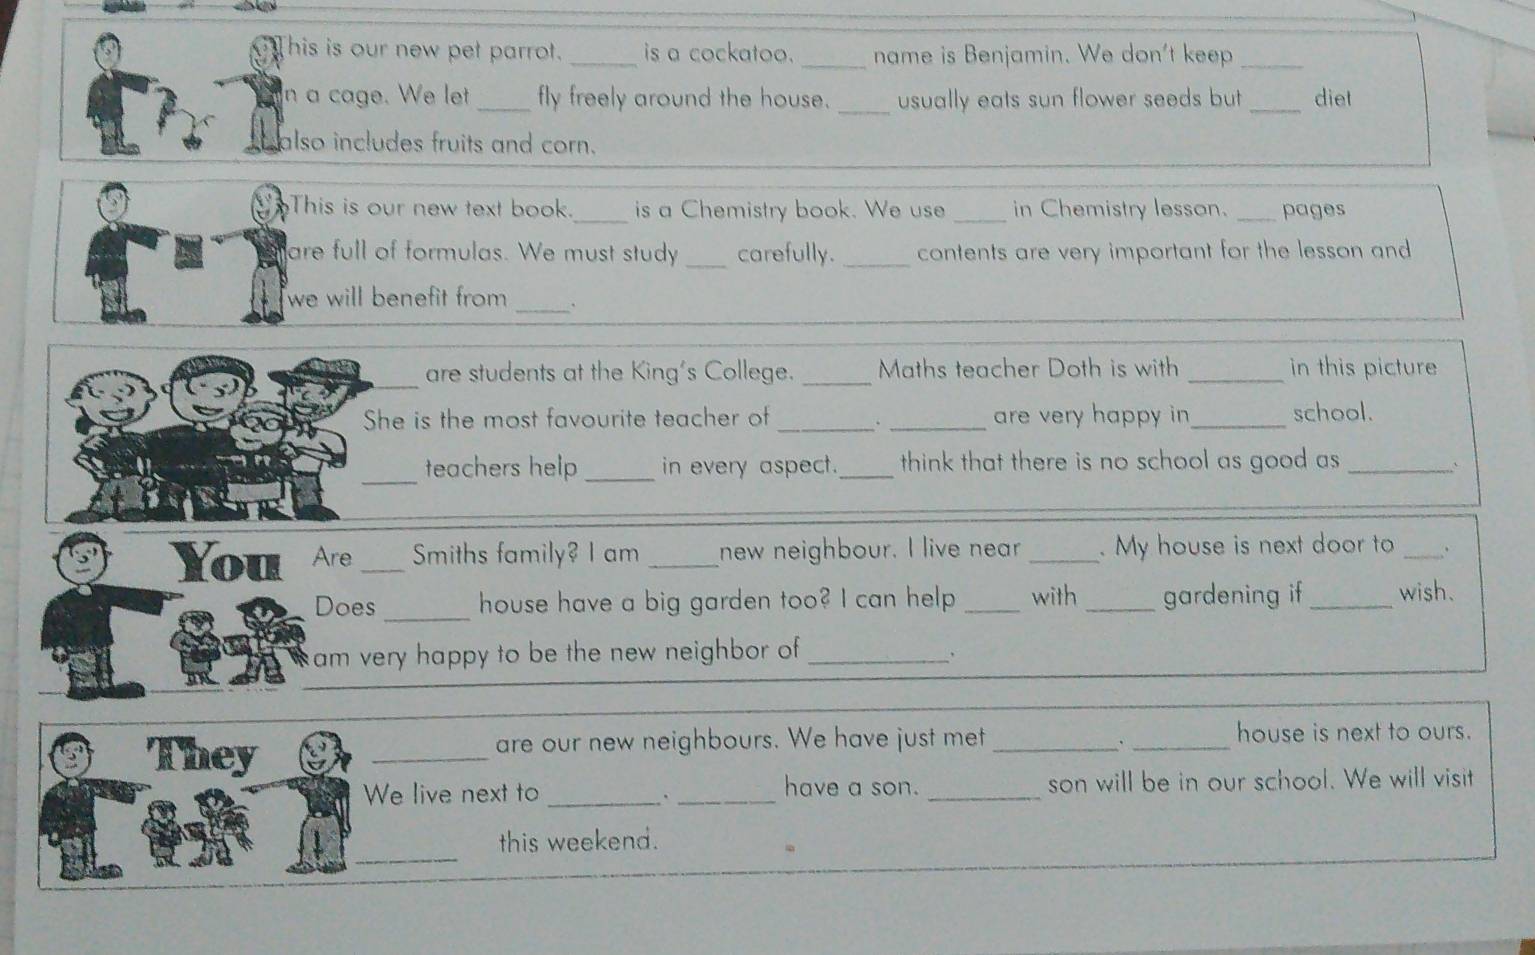 This is our new pet parrot. ______ is a cockatoo. ______ name is Benjamin. We don't keep ______
in a cage. We let _____ fly freely around the house. _____ usually eats sun flower seeds but _____ diet
also includes fruits and corn.
This is our new text book._____ is a Chemistry book. We use _____ in Chemistry lesson. ____ pages
are full of formulas. We must study ____ carefully. ______ contents are very important for the lesson and
we will benefit from _____.
____ are students at the King's College. ______ Maths teacher Doth is with _________ in this picture
She is the most favourite teacher of _________. _________ are very happy in_________ school.
_____ teachers help ______ in every aspect._____ think that there is no school as good as __________.
You Are ____ Smiths family? I am ______new neighbour. I live near ______. My house is next door to ____.
Does ________ house have a big garden too? I can help _____ with ______ gardening if _______ wish.
am very happy to be the new neighbor of _____________.
They ___________ are our new neighbours. We have just met ____________. _________ house is next to ours.
We live next to ___________. _________ have a son. ___________ son will be in our school. We will visit
__________ this weekend.